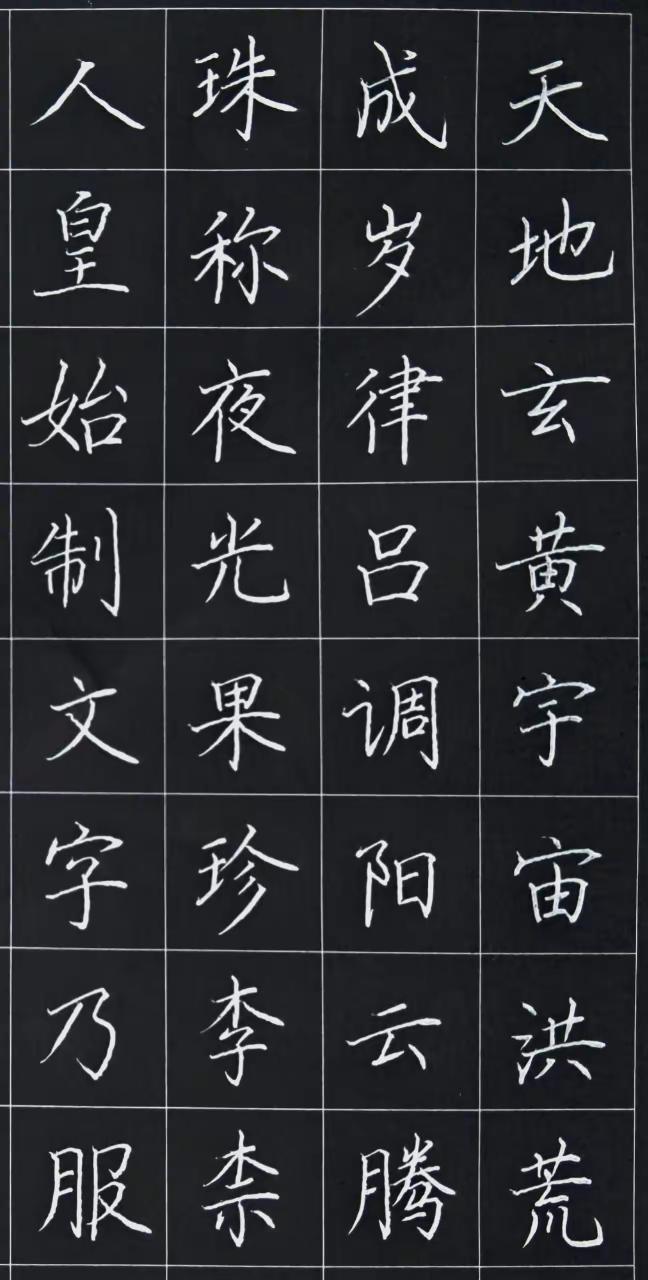 天地玄黄宇宙洪荒
成岁律吕调阳云腾
珠称夜光果珍李柰
人皇始制文字乃服